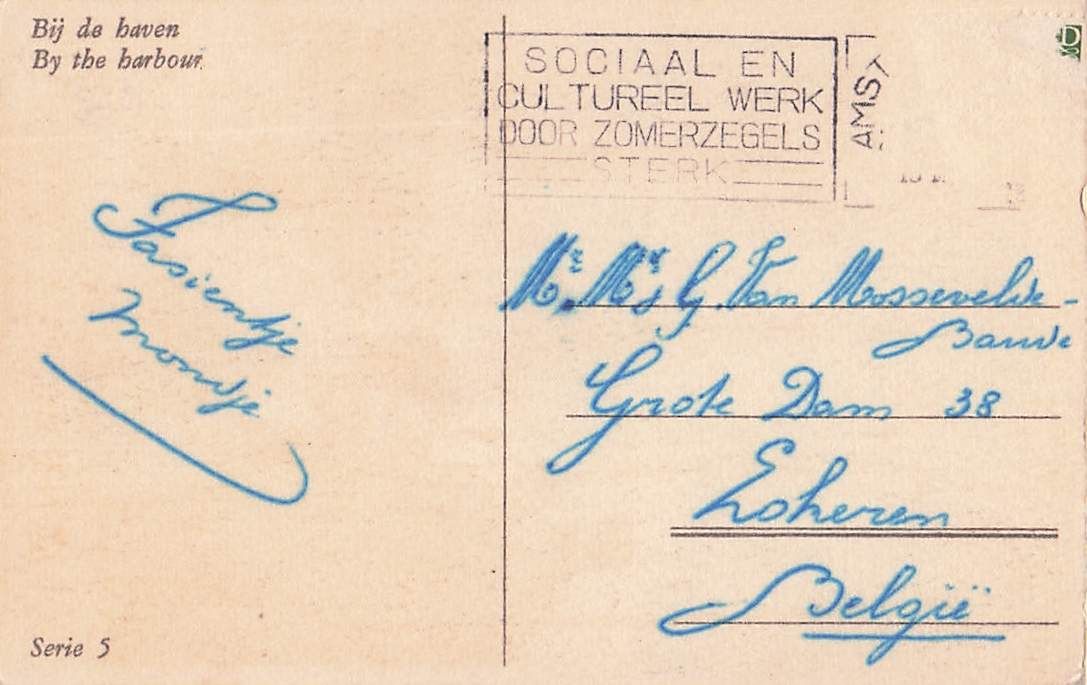 Bij de haven
By the harbour
SOCIAAL EN
CULTUREEL WERK
DOOR ZOMERZEGELS
STERK
AMST
Fasientje
Mondje
Mr. Mrs G. Van Mossevelde-
Bauwe
Grote Dam 38
Lokeren
België
Serie 5